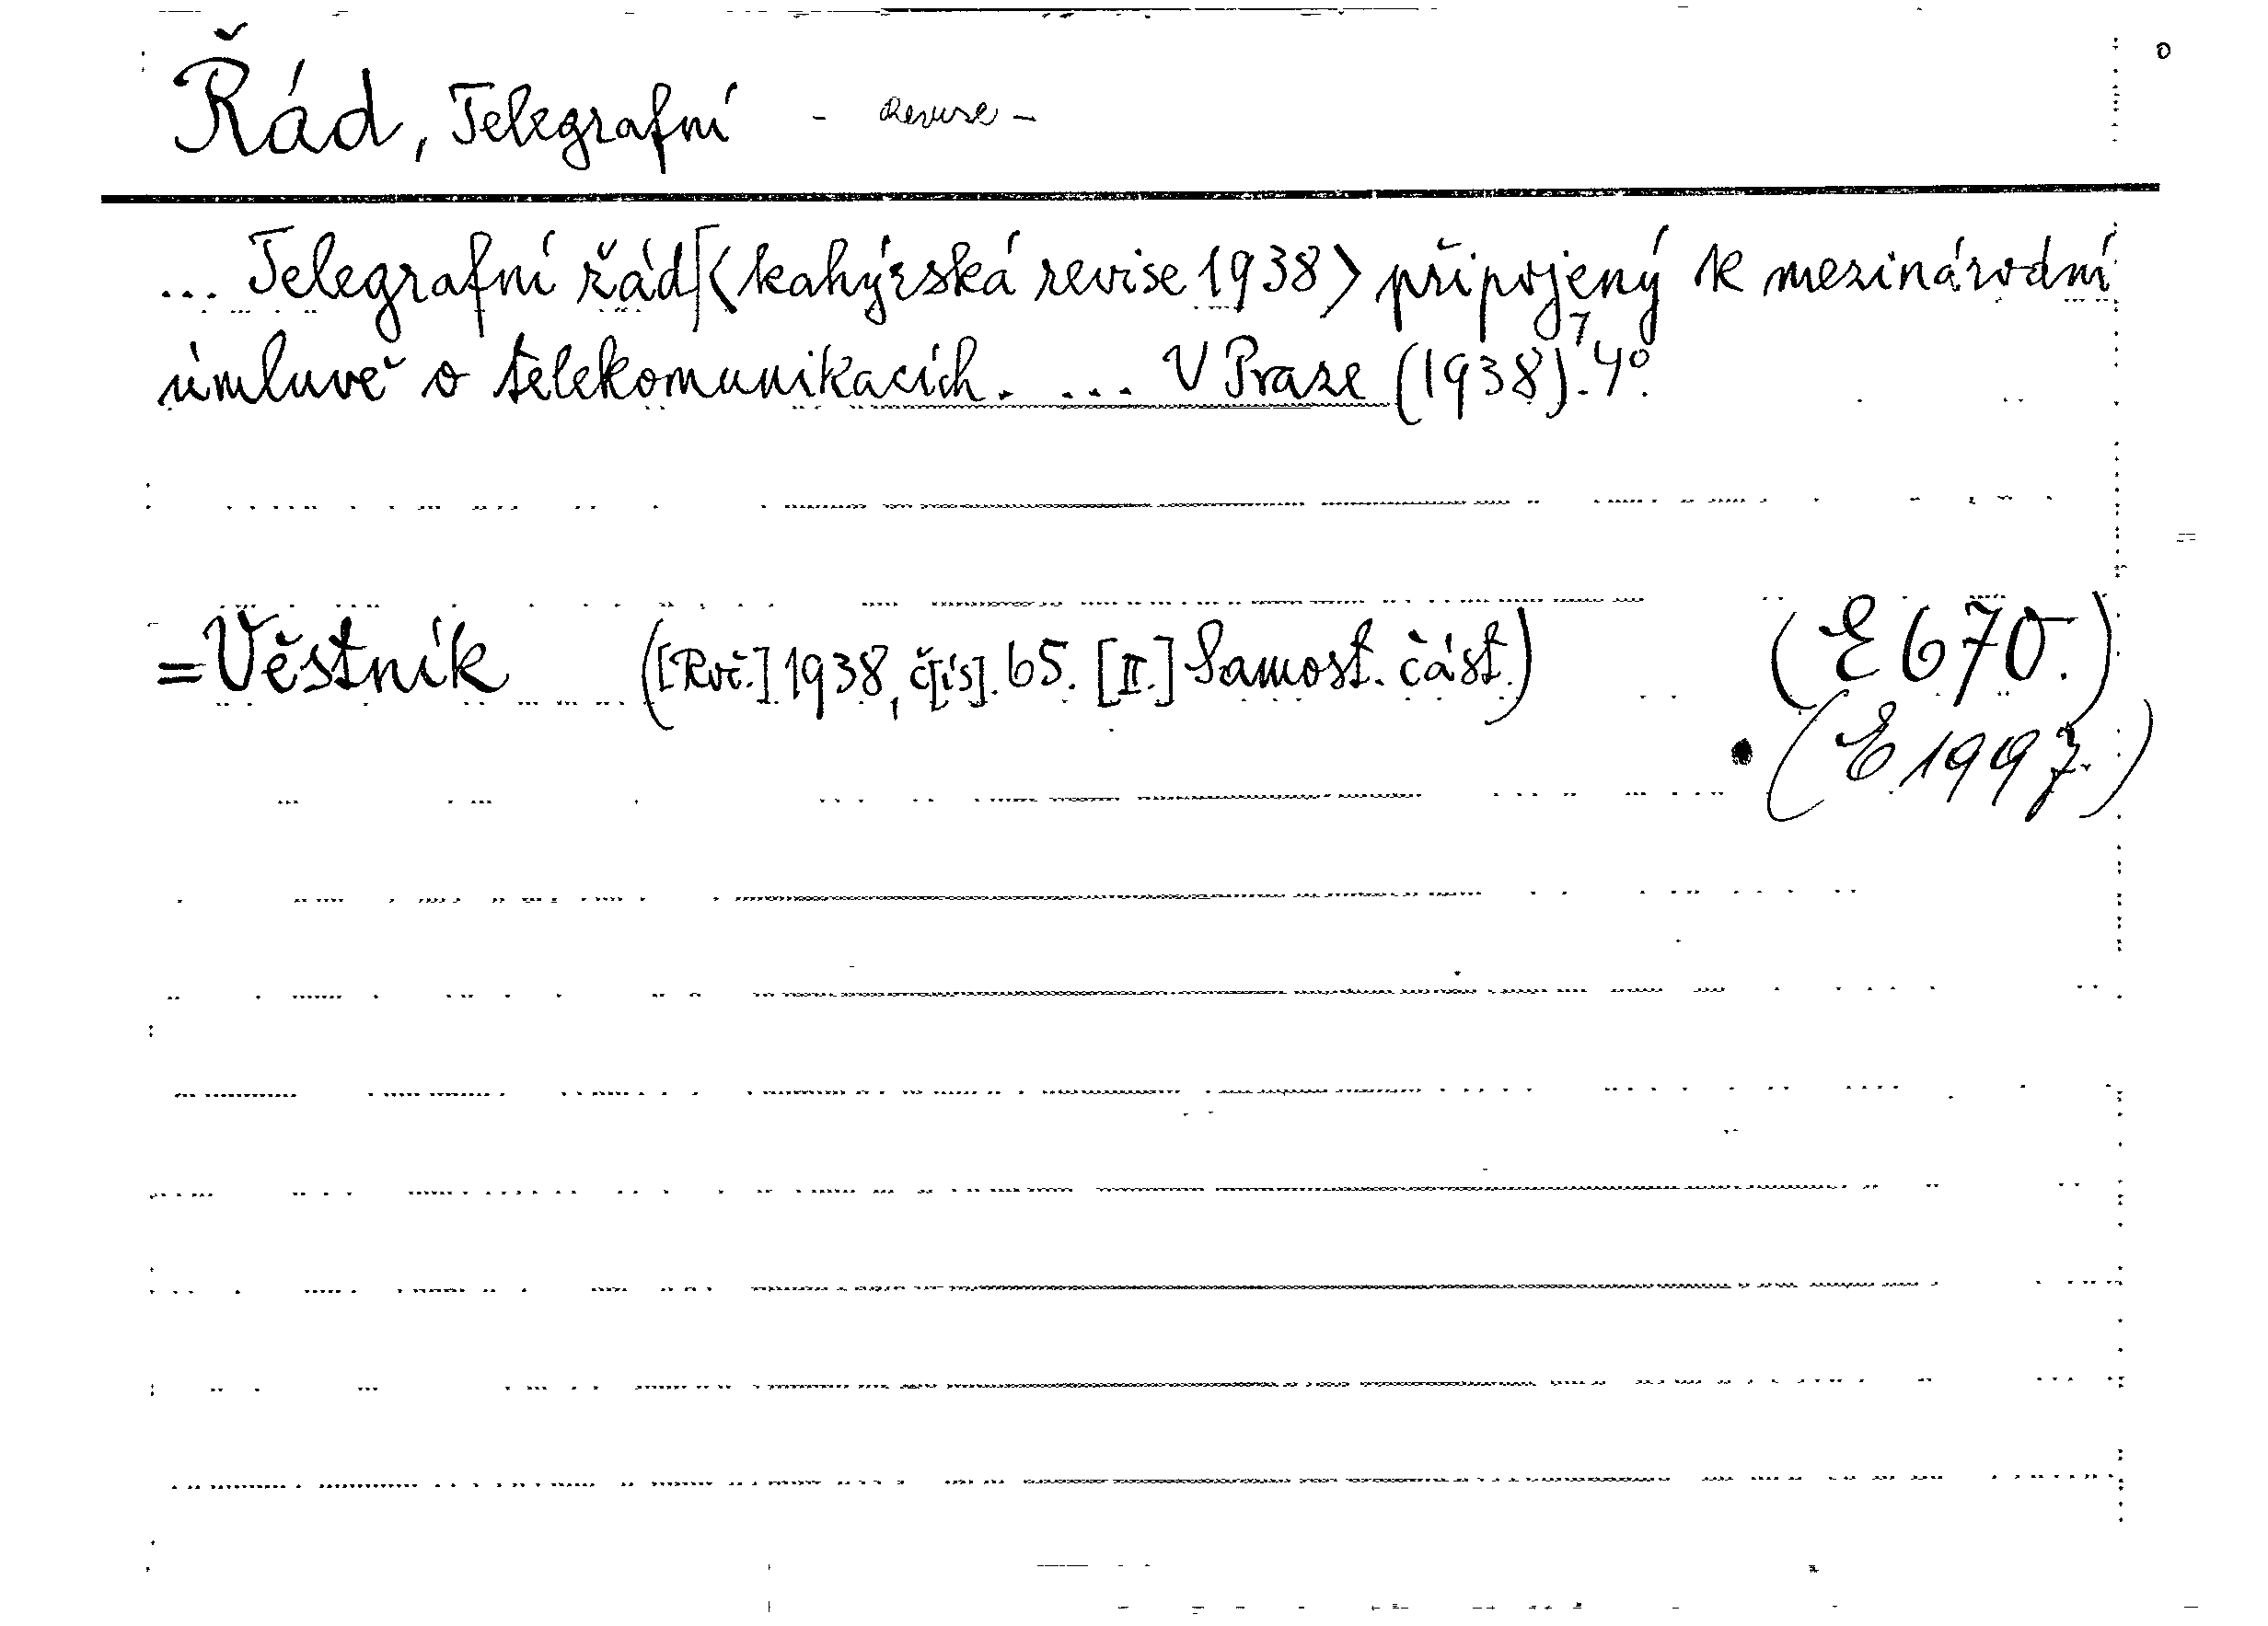 Řád, Telegrafní - Revise -
... Telegrafní řád[<kahýrská revise 1938> připojený k mezinárodní
úmluvě o telekomunikacích. ... V Praze (1938). 4°.
=Věstník ([Roč.] 1938, č[ís]. 65. [II.] Samost. část.) (E 670.)
(E 1997.)